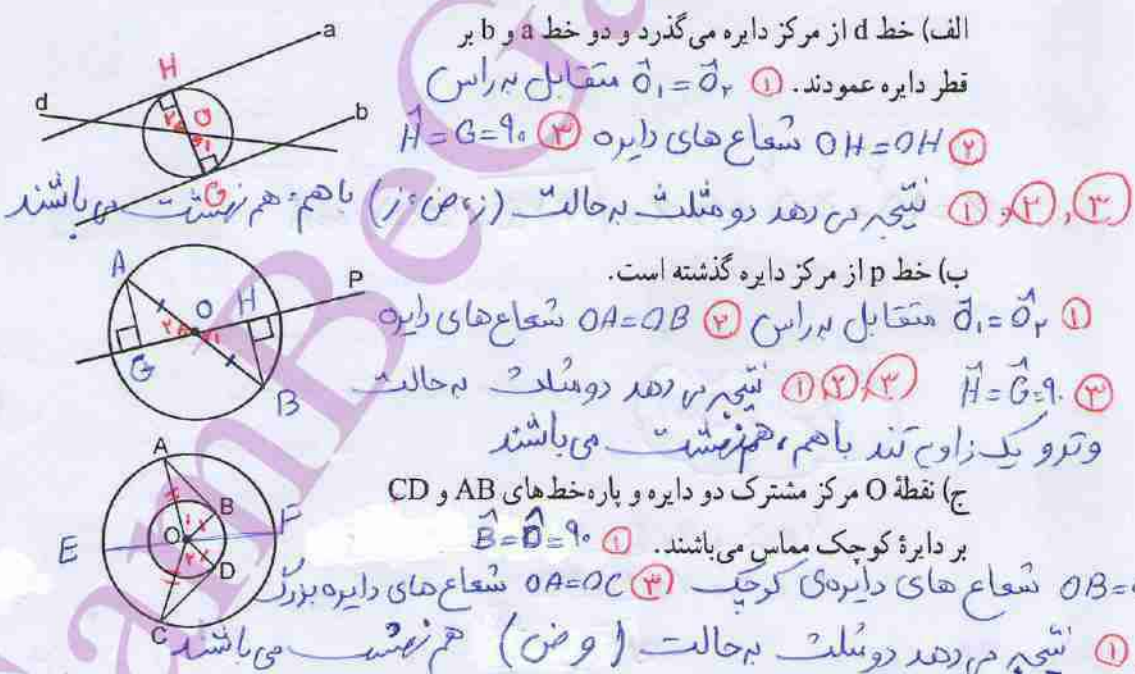 الف) خط d از مرکز دایره می‌گذرد و دو خط a و b بر
قطر دایره عمودند. ① Ô₁ = Ô₂ متقابل به راس
② OH = OH شعاع های دایره ③ Ĥ = G = ۹۰
①, ②, ③ نتیجه می دهد دو مثلث به حالت (ز، ض، ز) باهم، هم نهشت می باشند
a
H
d
۲
O
۱
b
G
ب) خط p از مرکز دایره گذشته است.
① Ô₁ = Ô₂ متقابل به راس ② OA = OB شعاع های دایره
③ Ĥ = Ĝ = ۹۰ ①, ②, ③ نتیجه می دهد دو مثلث به حالت
وتر و یک زاویه تند باهم، هم نهشت می باشند
A
P
O
H
۲
۱
G
B
ج) نقطهٔ O مرکز مشترک دو دایره و پاره‌خط‌های AB و CD
بر دایرهٔ کوچک مماس می‌باشند. ① B̂ = D̂ = ۹۰
OB = شعاع های دایره‌ی کوچک ③ OA = OC شعاع های دایره بزرگ
① نتیجه می دهد دو مثلث به حالت (و ض) هم نهشت می باشند
A
B
۱
E
O
F
۲
D
C